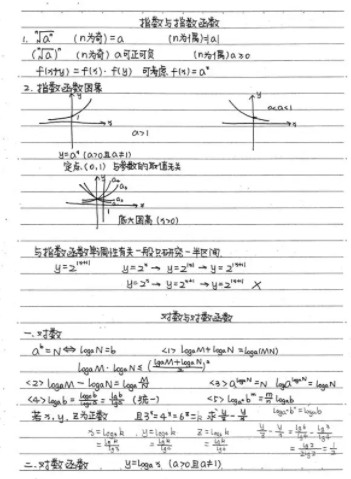 指数与指数函数
1. ⁿ√aⁿ (n为奇)=a (n为偶)=|a|
(ⁿ√a)ⁿ (n为奇) a可正可负 (n为偶) a≥0
f(x+y)=f(x)·f(y) 可考虑 f(x)=aˣ
2. 指数函数图象
y
1
x
a>1
y
0<a<1
x
y=aˣ (a>0且a≠1)
定点(0,1) 与参数的取值无关
底大图高(x>0)
与指数函数单调性有关一般只研究一半区间
y=2^|x+1| y=2ˣ → y=2^|x| → y=2^|x+1|
y=2ˣ → y=2^(x+1) → y=2^|x+1| ×
对数与对数函数
一.对数
aᵇ=N ⇔ logₐN=b <1> logₐM+logₐN=logₐ(MN)
logₐM·logₐN≤((logₐM+logₐN)/2)²
<2> logₐM-logₐN=logₐ(M/N) <3> a^(logₐN)=N logₐa^(logₐN)=logₐN
<4> logₐb=(log꜀b)/(log꜀a)=lgb/lga (换一) <5> logₐⁿbᵐ=(m/n)logₐb
若x,y,z为正数 且3ˣ=4ʸ=6ᶻ=k 求
x=log₃k y=log₄k z=log₆k
=lgk/lg3 =lgk/lg4 =lgk/lg6
二.对数函数 y=logₐx (a>0且a≠1)